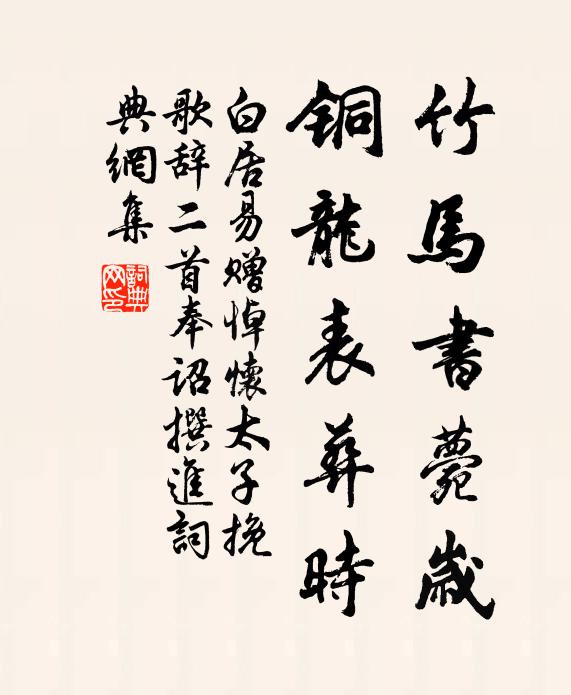 竹馬書薨歲
銅龍表葬時
白居易贈悼懷太子挽
歌辞二首奉詔撰進詞
典網集
詞典
网印